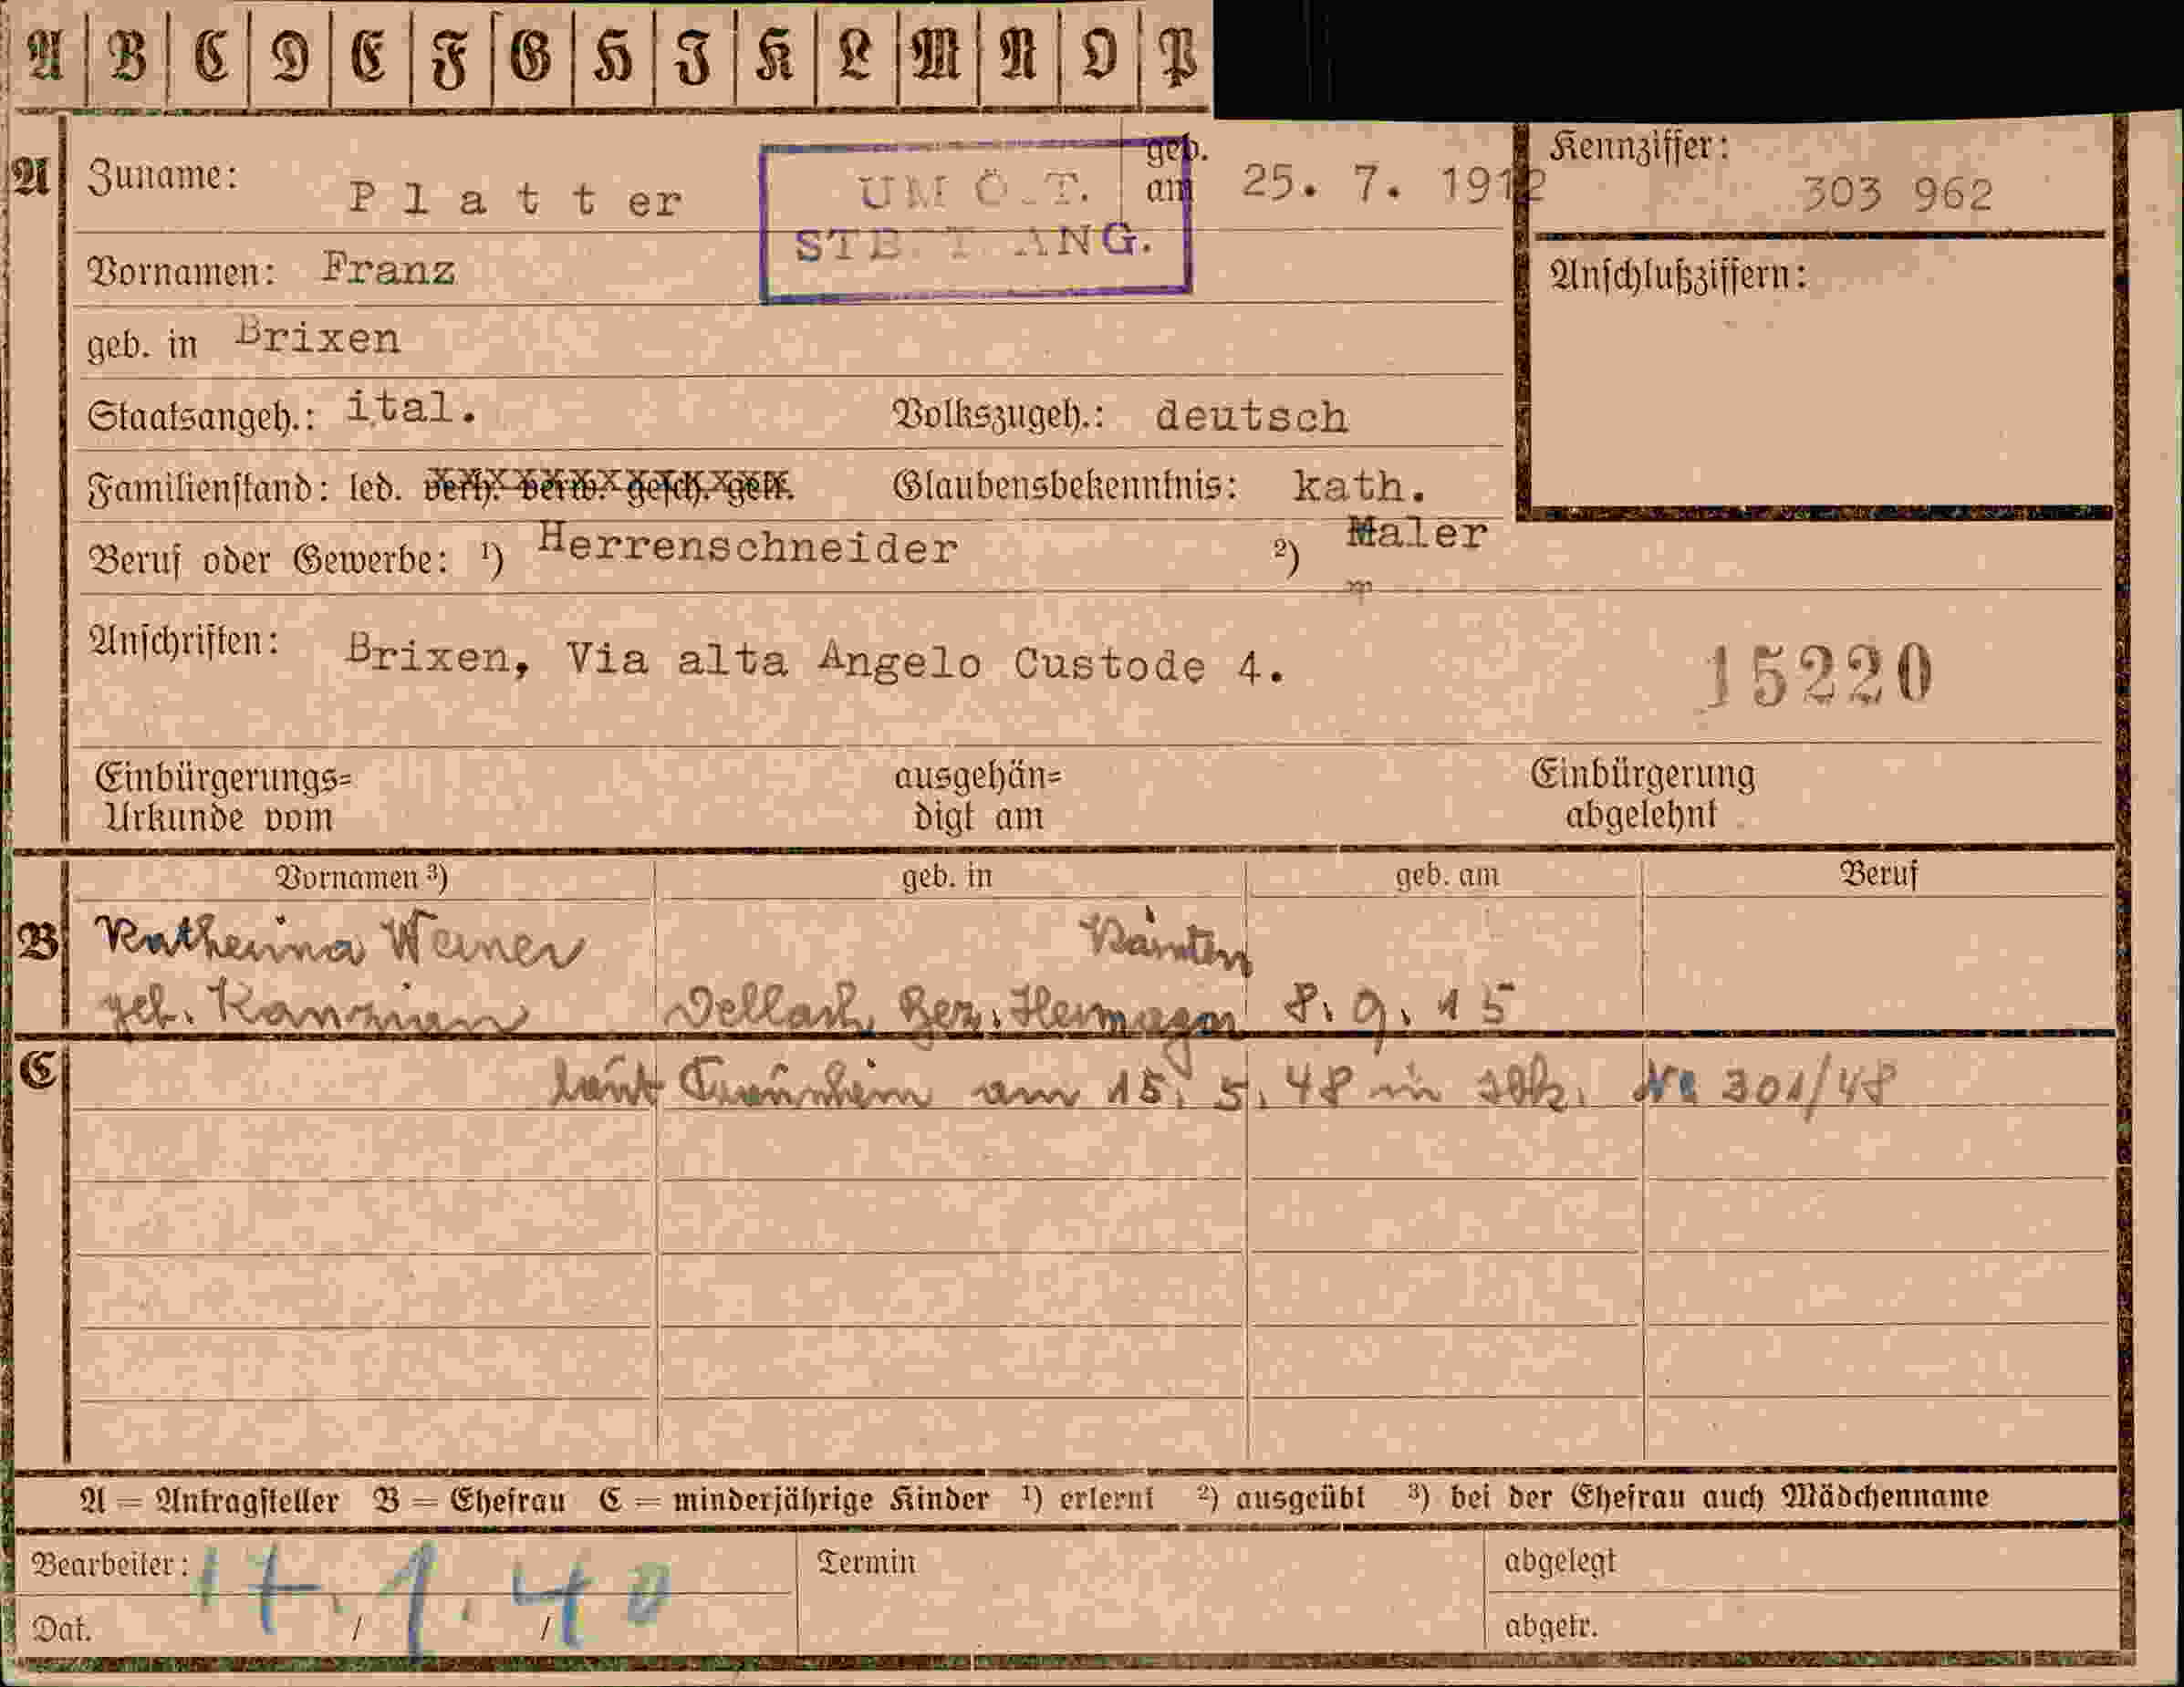 A B C D E F G H I K L M N O P
A Zuname: Platter geb. am 25. 7. 1912 Kennziffer: 303 962
UM Ö.T.
STBT ANG.
Vornamen: Franz Anschlußziffern:
geb. in Brixen
Staatsangeh.: ital. Volkszugeh.: deutsch
Familienstand: led. verh. verw. gesch. getr. Glaubensbekenntnis: kath.
Beruf oder Gewerbe: ¹) Herrenschneider ²) Maler
Anschriften: Brixen, Via alta Angelo Custode 4. 15220
Einbürgerungs= Urkunde vom ausgehän= digt am Einbürgerung abgelehnt
Vornamen ³) geb. in geb. am Beruf
B Katherina Weiner Kärnten
geb. Kanzian Dellach Bez. Hermagor 8. 9. 15
C laut am 15. 5. 48 in Ibk. No 301/48
A = Antragsteller B = Ehefrau C = minderjährige Kinder ¹) erlernt ²) ausgeübt ³) bei der Ehefrau auch Mädchenname
Bearbeiter: 17. 1. 40 Termin abgelegt
Dat. / / abgetr.